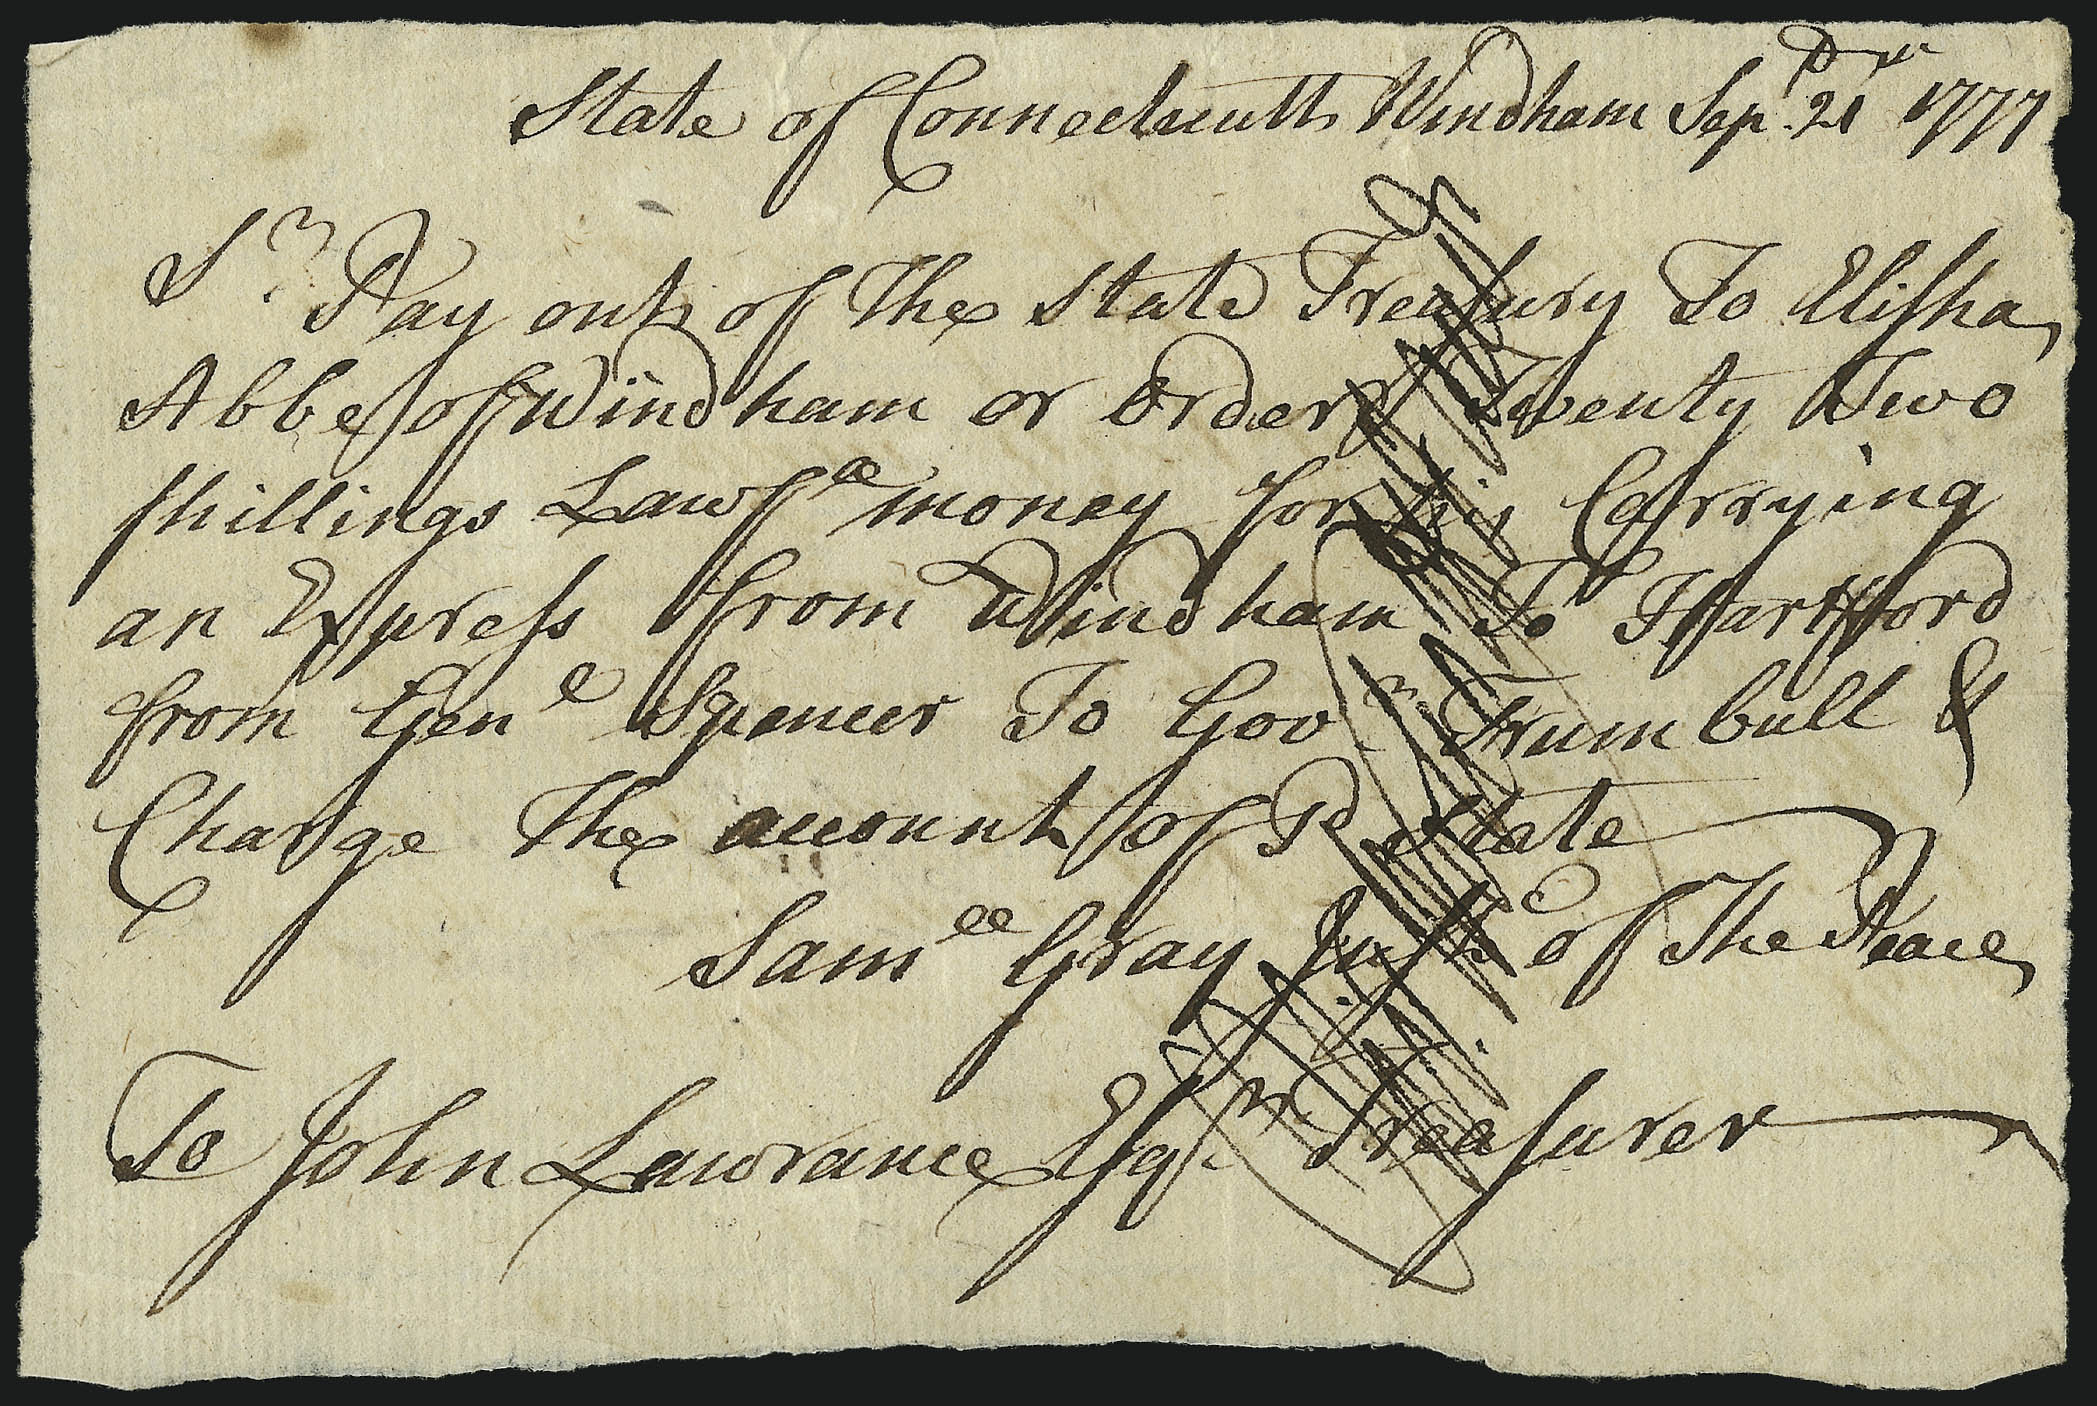 State of Connecticutt Windham Sepr. 21st 1777
Sr. Pay out of The State Treasury To Elisha
Abbe of Windham or order Twenty Two
shillings Lawfll money for his Carrying
an Express from Windham To Hartford
from Genll Spencer To Govr. Trumbull &
Charge The account of Sd State
Samll Gray Justc of The Peace
To John Lawrance Esqr. Treasurer